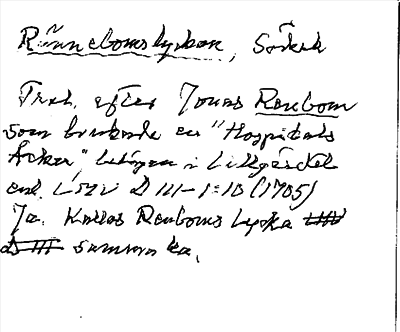 Rännebomslyckan, Söderk
Trol. efter Jonas Renbom
som brukade en "Hospitals
Åcker," belägen i Lillgärdet
enl. LMV D III-1:10 (1705)
Ja. Kallas Renboms lycka
samma ka.